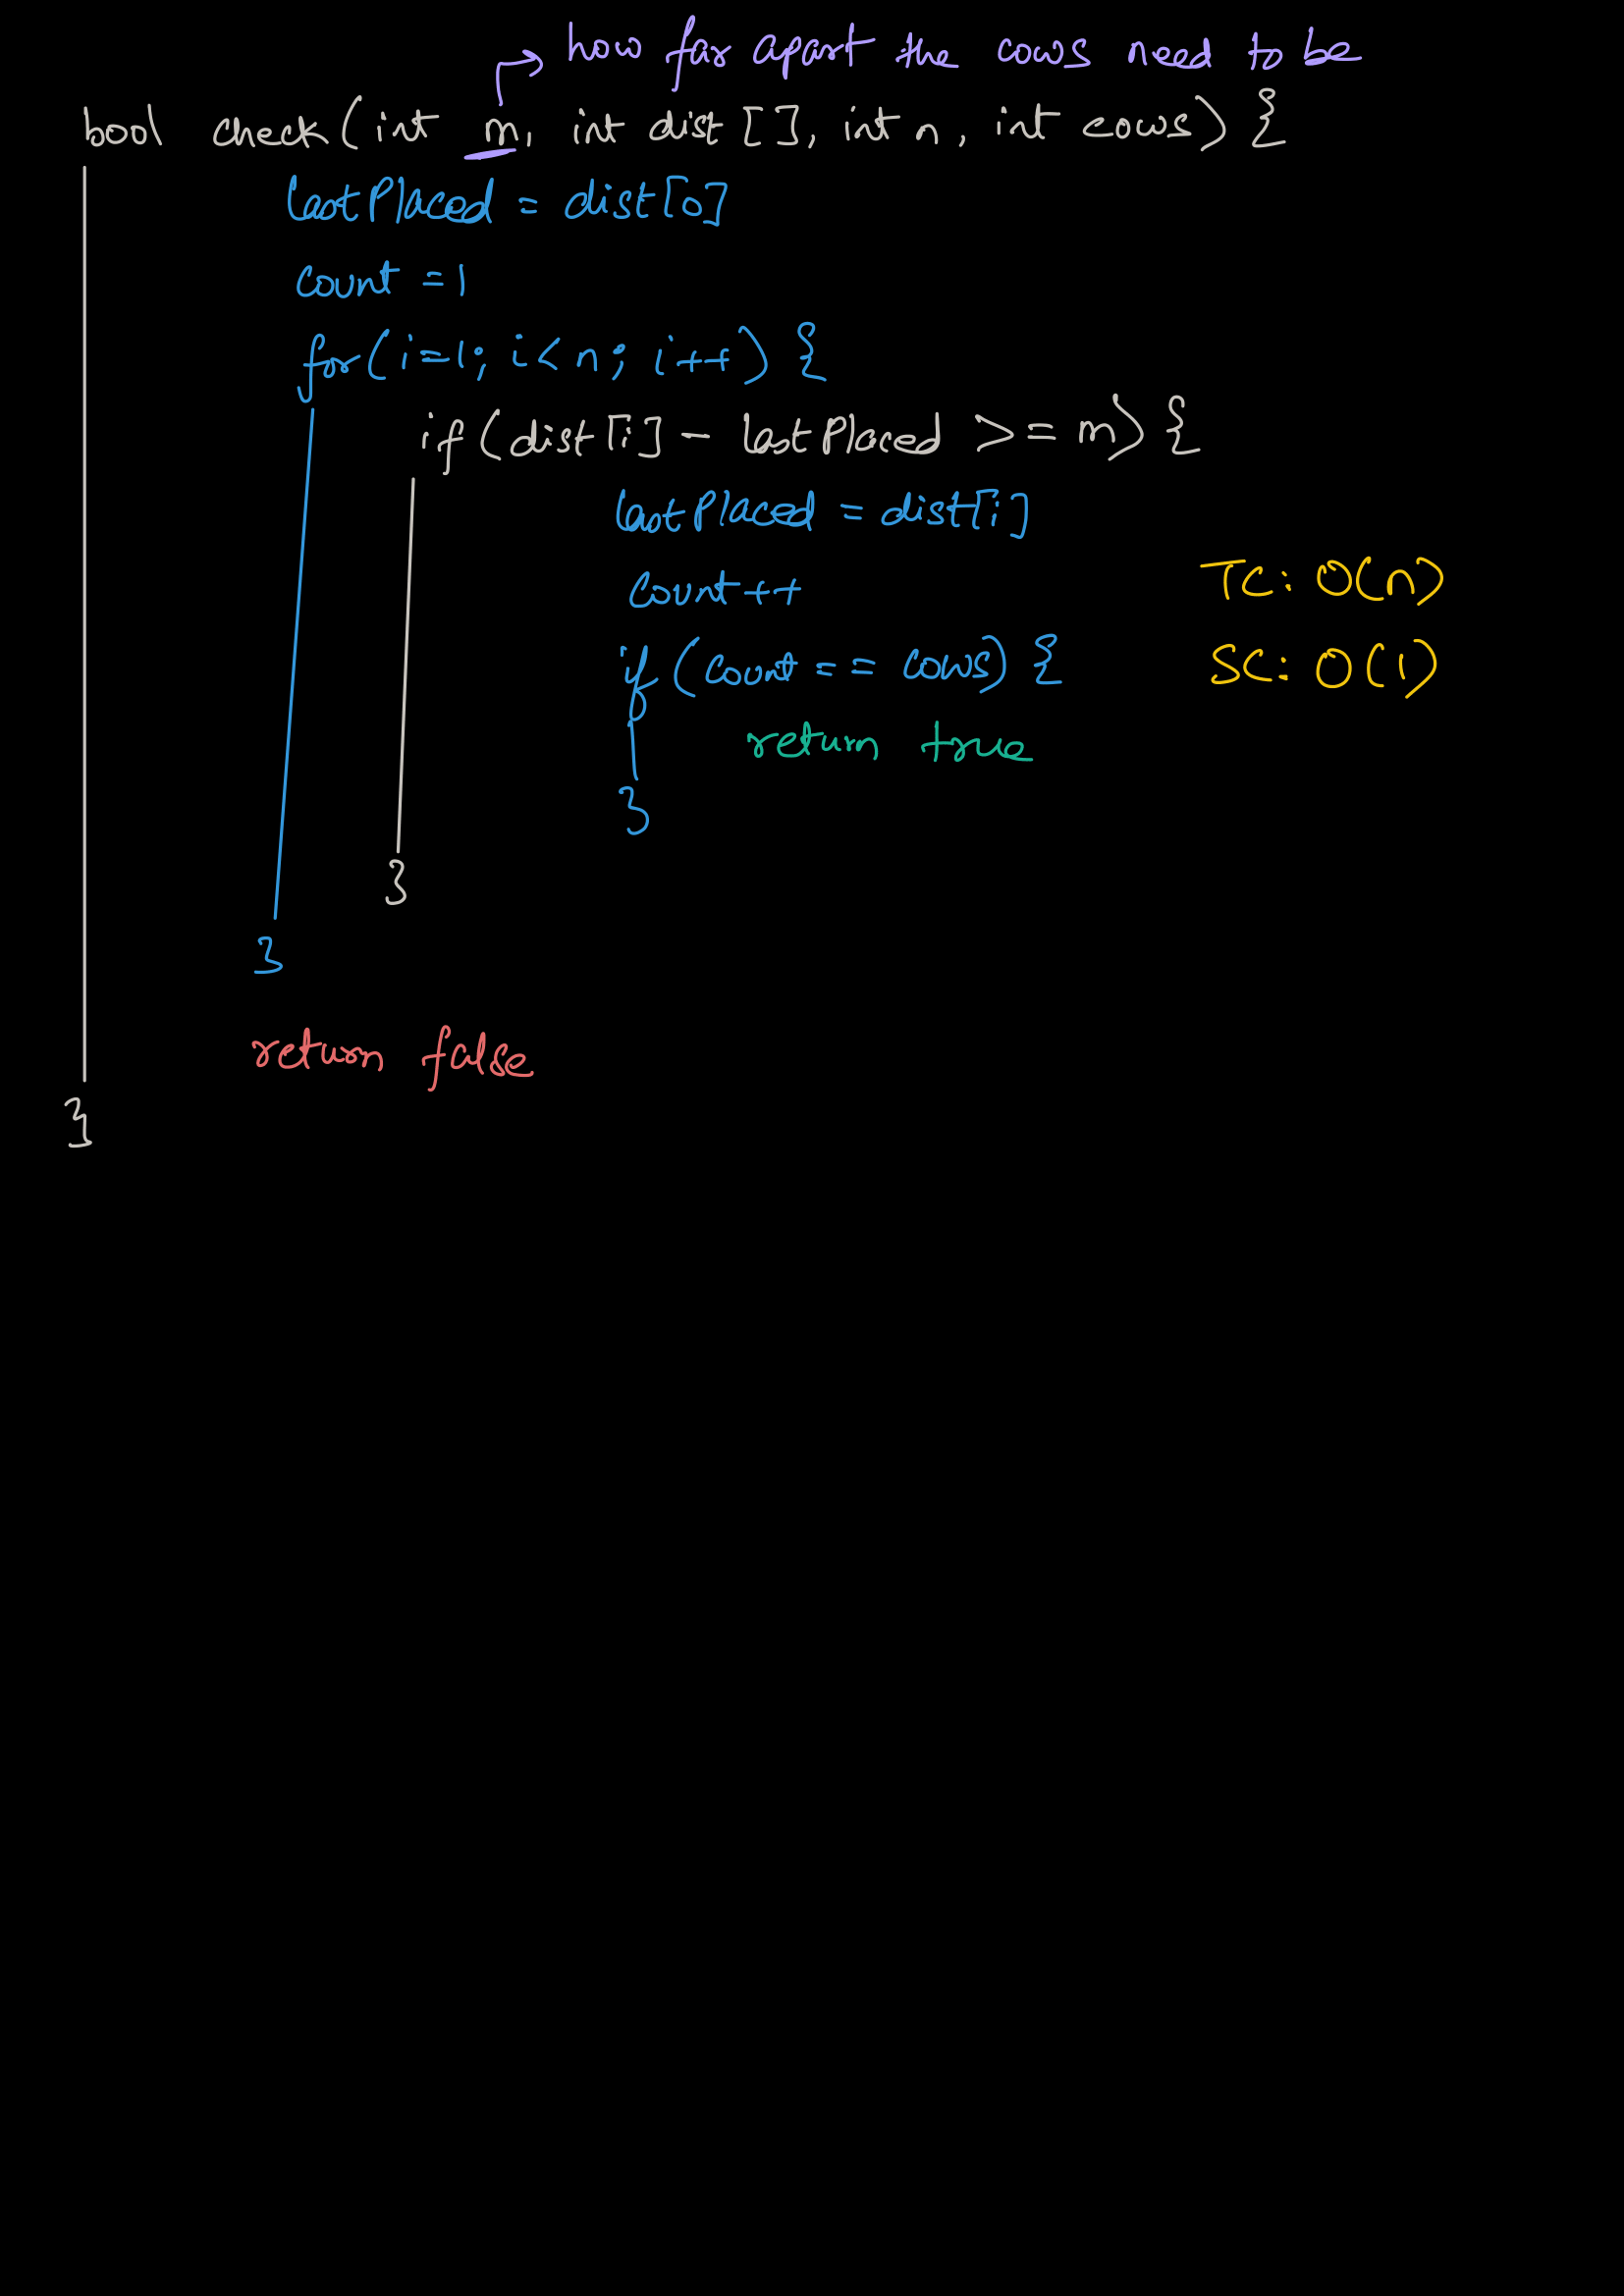 how far apart the cows need to be
bool check(int m, int dist[], int n, int cows) {
lastPlaced = dist[0]
count = 1
for(i=1; i<n; i++) {
if(dist[i] - lastPlaced >= m) {
lastPlaced = dist[i]
count++
TC: O(n)
if (count == cows) {
SC: O(1)
return true
}
}
}
return false
}